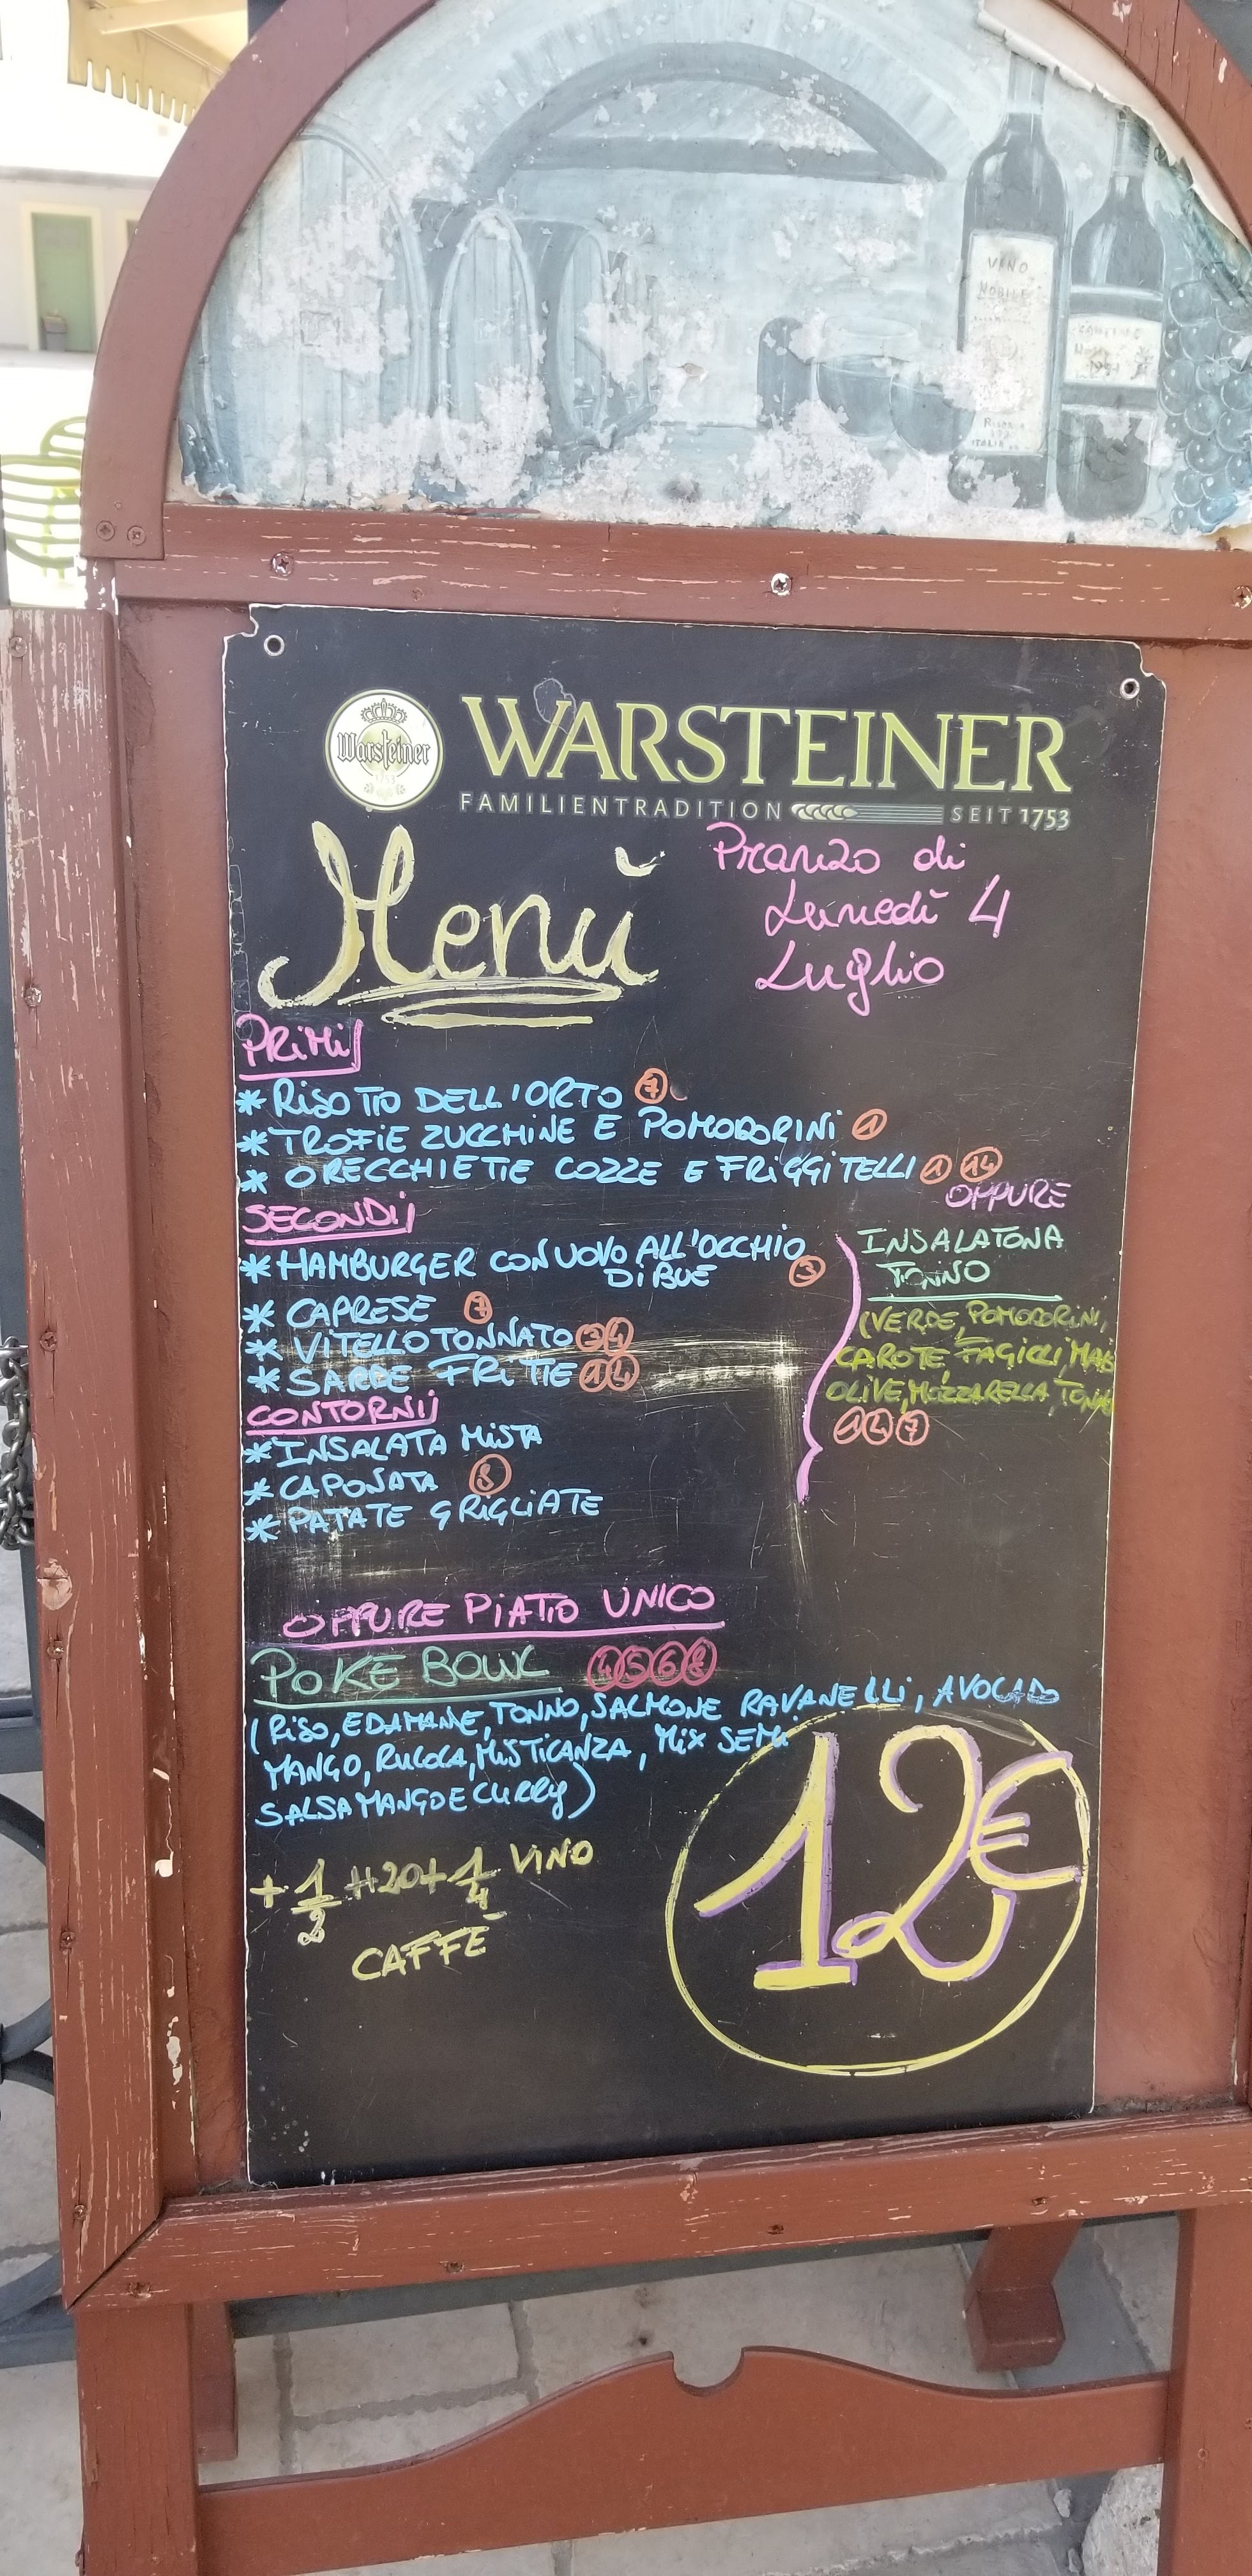 VINO
NOBILE
RISERVA
ITALIA
1994
Warsteiner
WARSTEINER
FAMILIENTRADITION SEIT 1753
Menù
Pranzo di
Lunedì 4
Luglio
PRIMI
* RISOTTO DELL'ORTO 7
* TROFIE ZUCCHINE E POMODORINI 1
* ORECCHIETTE COZZE E FRIGGITELLI 1 14
OPPURE
SECONDI
* HAMBURGER CON UOVO ALL'OCCHIO
DI BUE 3
* CAPRESE 7
* VITELLO TONNATO 3 4
* SARDE FRITTE 1 4
INSALATONA
TONNO
(VERDE, POMODORINI,
CAROTE FAGIOLI, MAIS
OLIVE, MOZZARELLA, TONNO
1 4 7
CONTORNI
* INSALATA MISTA
* CAPONATA 8
* PATATE GRIGLIATE
OPPURE PIATTO UNICO
POKE BOWL 4 5 6 8
(RISO, EDAMAME, TONNO, SALMONE RAVANELLI, AVOCADO
MANGO, RUCOLA, MISTICANZA, MIX SEMI
SALSA MANGO E CURRY)
+ 1/2 H2O + 1/4 VINO
CAFFÈ
12€